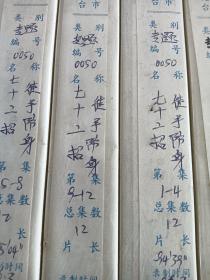 台市
类别
专题
编号
0050
名称
徒手防身
七十二招
第 集
5-8
总集数
12
片长
台市
类别
专题
编号
0050
名称
徒手防身
七十二招
第 集
9-12
总集数
12
片长
台市
类别
专题
编号
0050
名称
徒手防身
七十二招
第 集
1-4
总集数
12
片长
54'39"